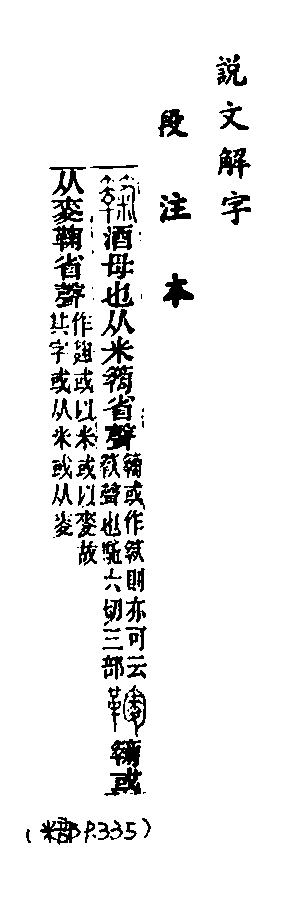 說文解字
段注本
酒母也从米省聲或作則亦可云聲也六切三部或
从麥鞠省聲作麴或以米或以麥故其字或从米或从麥
(米部P.335)